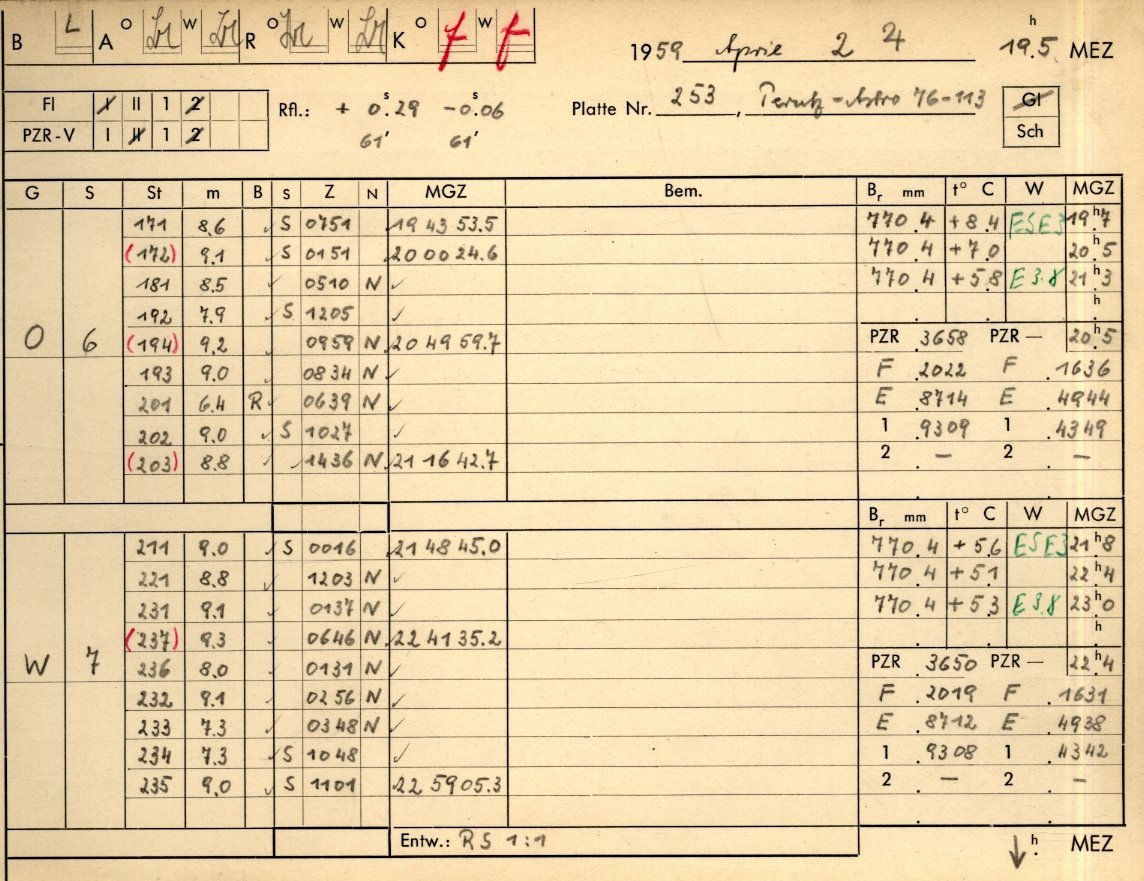 B L A O W R O W K O f W f
1959 April 24 19.5 h MEZ
FI I II 1 2
PZR-V I II 1 2
Rfl.: + 0.29 s -0.06 s
61' 61'
Platte Nr. 253, Perutz-Astro 76-113
GI
Sch
G S St m B S Z N MGZ Bem. Br mm t° C W MGZ
171 8.6 ✓ S 0751 19 43 53.5 770.4 +8.4 ESE3 19.h7
(172) 9.1 ✓ S 0151 20 00 24.6 770.4 +7.0 20.h5
181 8.5 ✓ 0510 N ✓ 770.4 +5.8 E 3.8 21.h3
192 7.9 ✓ S 1205 ✓ h
O 6 (194) 9.2 ✓ 0959 N 20 49 59.7 PZR 3658 PZR — 20.h5
193 9.0 ✓ 0834 N ✓ F 2022 F 1636
201 6.4 R ✓ 0639 N ✓ E 8714 E 4944
202 9.0 ✓ S 1027 ✓ 1 9309 1 4349
(203) 8.8 ✓ 1436 N 21 16 42.7 2 — 2 —
Br mm t° C W MGZ
211 9.0 ✓ S 0016 21 48 45.0 770.4 +5.6 ESE3 21.h8
221 8.8 ✓ 1203 N ✓ 770.4 +5.1 22.h4
231 9.1 ✓ 0137 N ✓ 770.4 +5.3 E 3.8 23.h0
(237) 9.3 ✓ 0646 N 22 41 35.2 h
W 7 236 8.0 ✓ 0131 N ✓ PZR 3650 PZR — 22.h4
232 9.1 ✓ 0256 N ✓ F 2019 F 1631
233 7.3 ✓ 0348 N ✓ E 8712 E 4938
234 7.3 ✓ S 1048 ✓ 1 9308 1 4342
235 9.0 ✓ S 1101 22 59 05.3 2 — 2 —
Entw.: RS 1:1 ↓ h MEZ